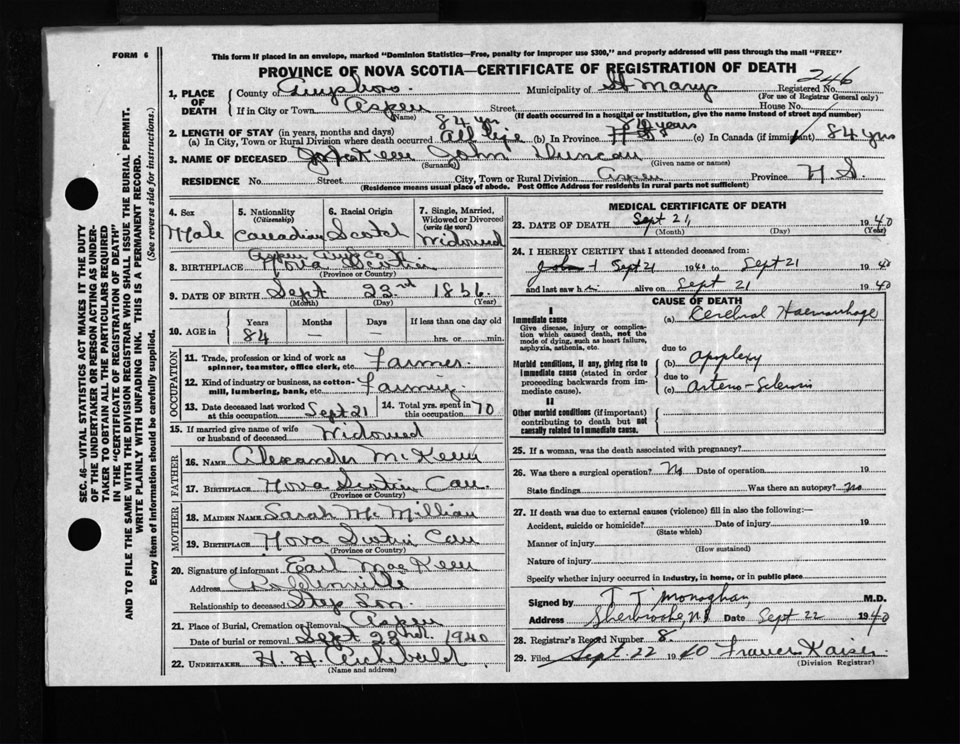 FORM 6
This form if placed in an envelope, marked "Dominion Statistics—Free, penalty for improper use $300," and properly addressed will pass through the mail "FREE"
PROVINCE OF NOVA SCOTIA—CERTIFICATE OF REGISTRATION OF DEATH
246
1. PLACE OF DEATH County of Guysboro Municipality of St Marys Registered No.
(For use of Registrar General only)
If in City or Town Aspen Street House No.
(Name) (If death occurred in a hospital or institution, give the name instead of street and number)
84 yrs
2. LENGTH OF STAY (in years, months and days)
(a) In City, Town or Rural Division where death occurred All life (b) In Province years (c) In Canada (if immigrant) 84 yrs
3. NAME OF DECEASED John Duncan
(Surname) (Given name or names)
RESIDENCE No. Street City, Town or Rural Division Aspen Province N S.
(Residence means usual place of abode. Post Office Address for residents in rural parts not sufficient)
4. Sex Male
5. Nationality (Citizenship) Canadian
6. Racial Origin Scotch
7. Single, Married, Widowed or Divorced (write the word) Widowed
Aspen Guy Co
8. BIRTHPLACE Nova Scotia
(Province or Country)
9. DATE OF BIRTH Sept 23rd 1856.
(Month) (Day) (Year)
10. AGE in Years Months Days If less than one day old
84 hrs. or min.
OCCUPATION
11. Trade, profession or kind of work as spinner, teamster, office clerk, etc. Farmer
12. Kind of industry or business, as cotton-mill, lumbering, bank, etc. Farming
13. Date deceased last worked at this occupation Sept 21 14. Total yrs. spent in this occupation 70
15. If married give name of wife or husband of deceased Widowed
FATHER
16. NAME Alexander McKeen
17. BIRTHPLACE Nova Scotia Can.
(Province or Country)
MOTHER
18. MAIDEN NAME Sarah McMillian
19. BIRTHPLACE Nova Scotia Can
(Province or Country)
20. Signature of informant Earl MacKeen
Address
Relationship to deceased Step Son.
21. Place of Burial, Cremation or Removal Aspen
Date of burial or removal Sept 23rd. 1940
22. UNDERTAKER H. H. Archibald
(Name and address)
MEDICAL CERTIFICATE OF DEATH
23. DATE OF DEATH Sept 21, 1940
(Month) (Day) (Year)
24. I HEREBY CERTIFY that I attended deceased from:
Sept 21 1940 to Sept 21 1940
and last saw h alive on Sept 21 1940
CAUSE OF DEATH
I
Immediate cause (a) Cerebral Haemorrhage
Give disease, injury or complication which caused death, not the mode of dying, such as heart failure, asphyxia, asthenia, etc.
due to
Morbid conditions, if any, giving rise to immediate cause (stated in order proceeding backwards from immediate cause).
(b) Apoplexy
due to
(c) Arterio-Sclerosis
II
Other morbid conditions (if important) contributing to death but not causally related to immediate cause.
25. If a woman, was the death associated with pregnancy?
26. Was there a surgical operation? No Date of operation 19
State findings Was there an autopsy? no
27. If death was due to external causes (violence) fill in also the following:—
Accident, suicide or homicide? Date of injury 19
(State which)
Manner of injury
(How sustained)
Nature of injury
Specify whether injury occurred in industry, in home, or in public place
Signed by T T Monaghan, M.D.
Address Sherbrooke, N.S. Date Sept 22 1940
28. Registrar's Record Number 8.
29. Filed Sept. 22 1940 Kaiser
(Division Registrar)
SEC. 46—VITAL STATISTICS ACT MAKES IT THE DUTY
OF THE UNDERTAKER OR PERSON ACTING AS UNDER-
TAKER TO OBTAIN ALL THE PARTICULARS REQUIRED
IN THE "CERTIFICATE OF REGISTRATION OF DEATH"
AND TO FILE THE SAME WITH THE DIVISION REGISTRAR WHO SHALL ISSUE THE BURIAL PERMIT.
WRITE PLAINLY WITH UNFADING INK. THIS IS A PERMANENT RECORD.
Every item of information should be carefully supplied. (See reverse side for instructions.)